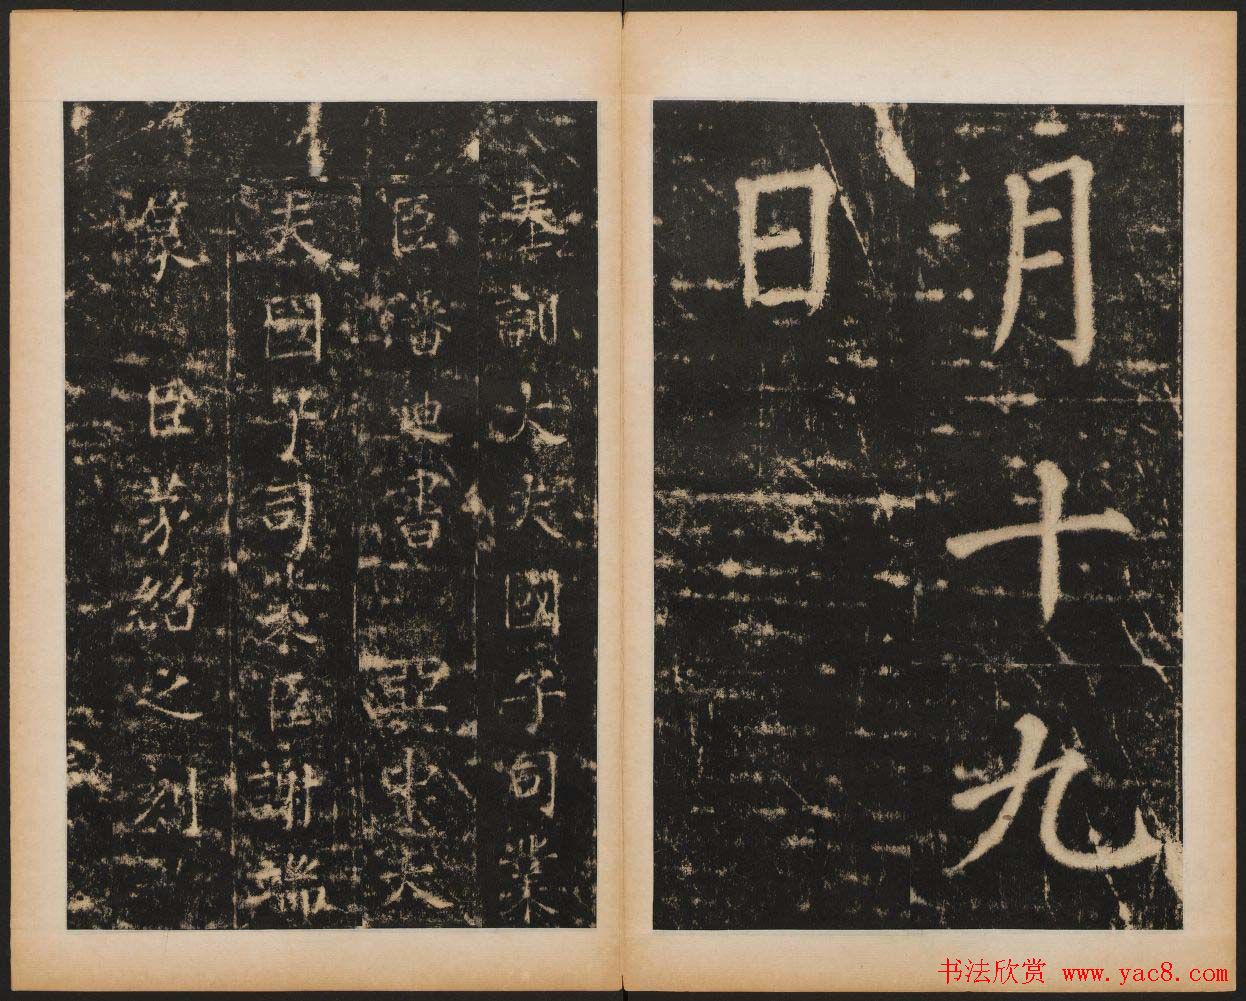 月十九
日
奉訓大夫國子司業
臣潘迪書 亞中大
夫國子司業臣謝端
撰 臣茅紹之刻
书法欣赏 www.yac8.com